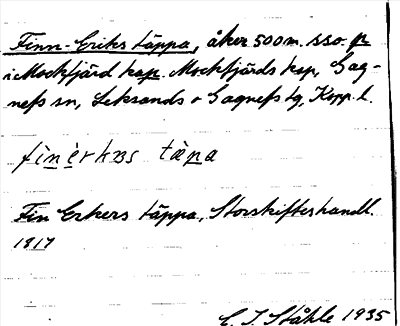 Finn-Eriks täppa, åker 500 m. sso. p
i Mockfjärd kap. Mockfjärds ksp, Gag-
nefs sn, Leksands o Gagnefs tg, Kopp. l.
Fin Erkers täppa, Storskifteshandl.
1817
E. I. Ståhle 1935